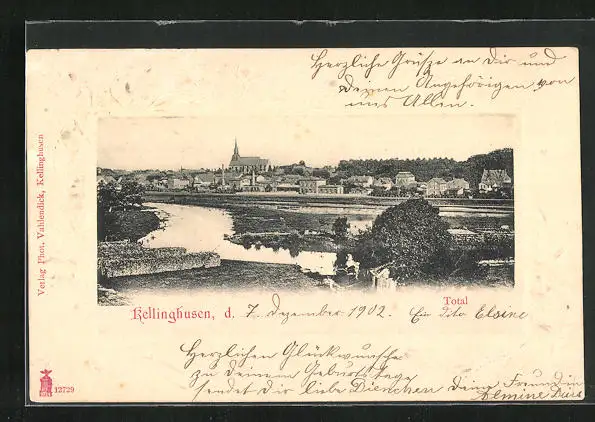 Herzliche Grüße an Dir und
Deinen Angehörigen von
uns Allen.
Verlag Phot. Vahlendick, Kellinghusen
Total
Kellinghusen, d. 7. Dezember 1902. Ein Dito Elsine
Herzlichen Glückwunsch
zu deinem Geburtstage
sendet Dir liebe Dienchen deine Freundin
Almine
12729